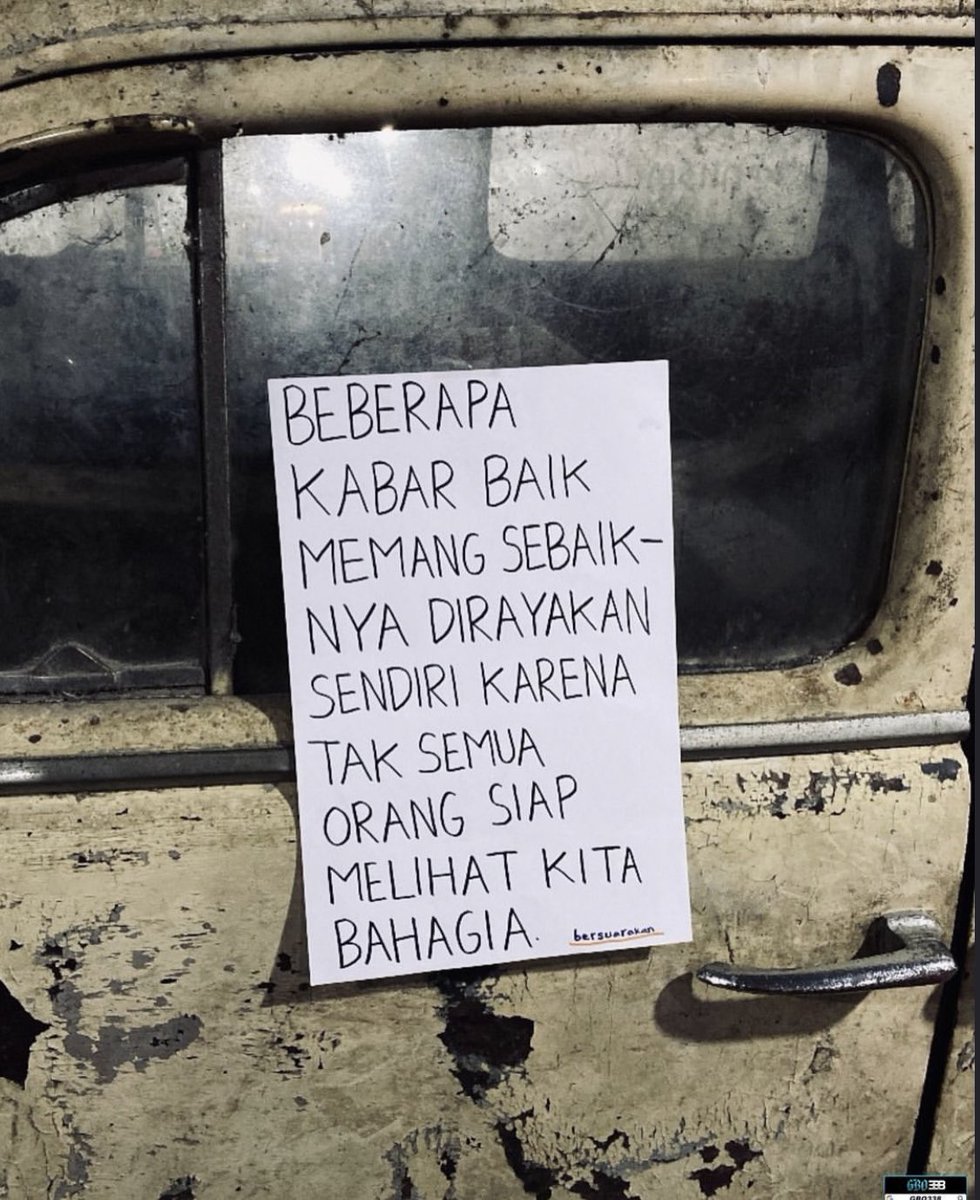 BEBERAPA
KABAR BAIK
MEMANG SEBAIK-
NYA DIRAYAKAN
SENDIRI KARENA
TAK SEMUA
ORANG SIAP
MELIHAT KITA
BAHAGIA.
bersuarakan
GBO338
GBO338